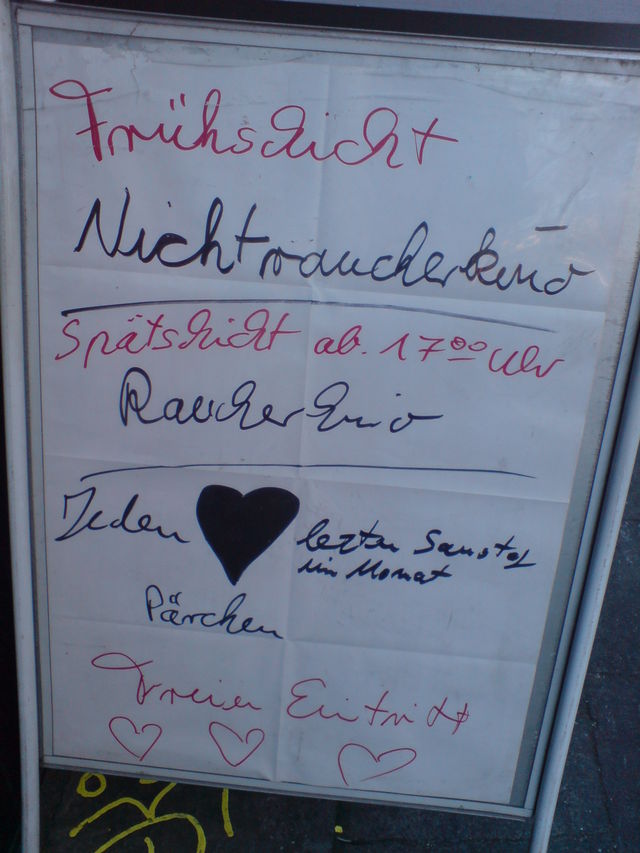 Frühschicht
Nichtraucherkino
Spätschicht ab. 17⁰⁰ Uhr
Raucherkino
Jeden letzten Samstag
im Monat
Pärchen
Freier Eintritt